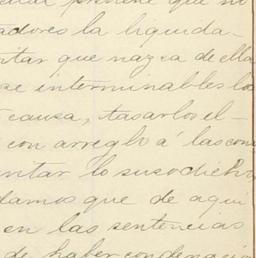 previene que no
adores la liquida-
ntar que nazca de ella
se interminables lo
causa, tasarlos el-
con arreglo á las con
ntar lo susodicho
damos que de aqui
en las sentencias
de haber condenació